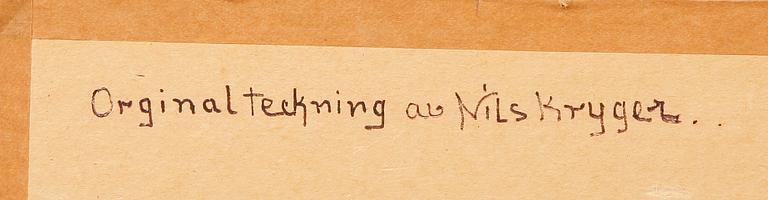 Orginalteckning av Nils Kryger. . .